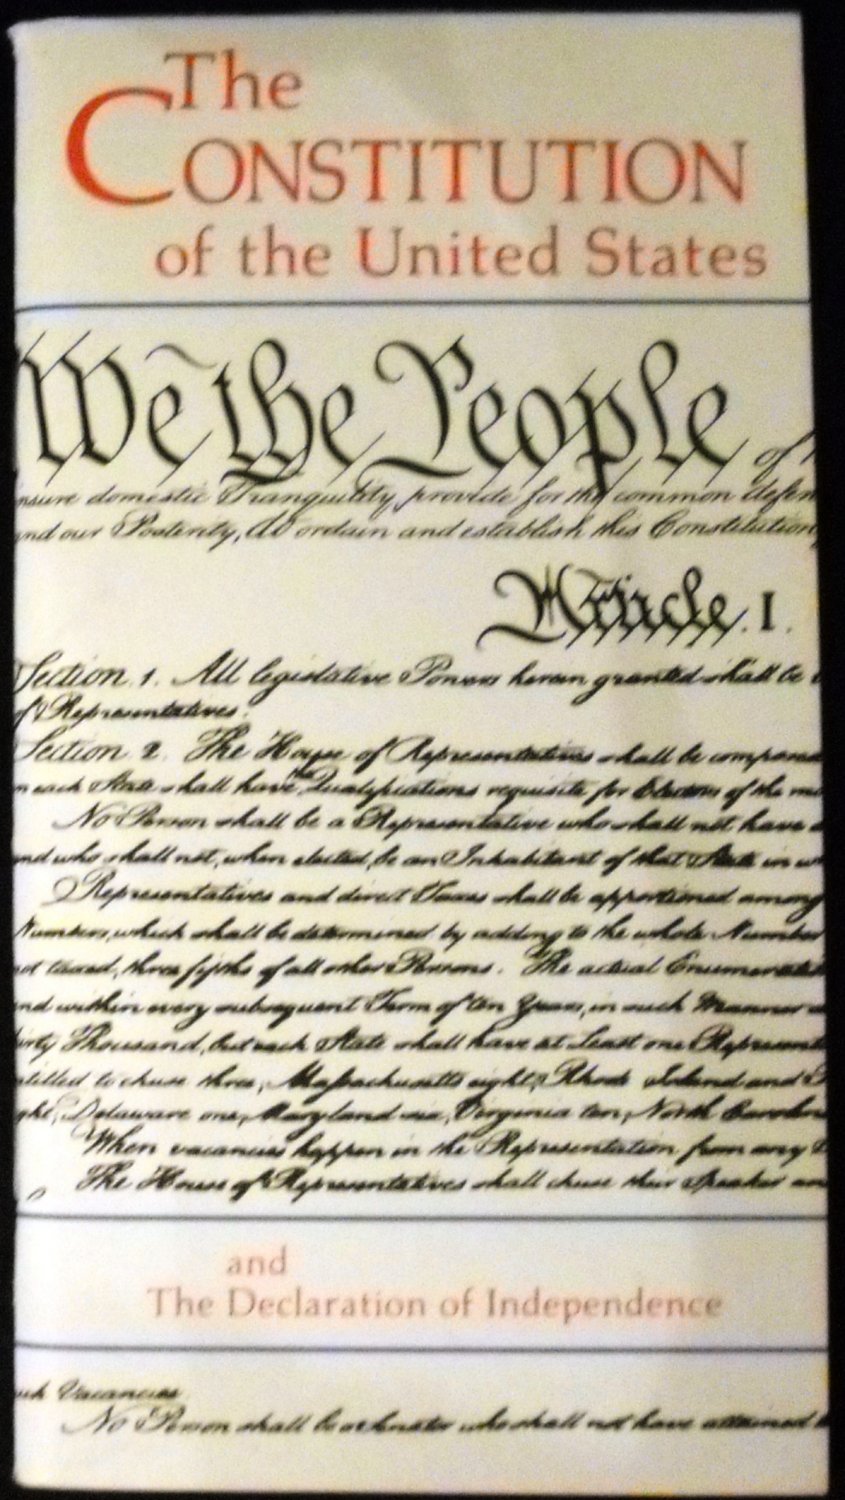 The
CONSTITUTION
of the United States
We the People of
nsure domestic Tranquility, provide for the common defen
nd our Posterity, do ordain and establish this Constitution
Article. I.
Section. 1. All legislative Powers herein granted shall be
of Representatives.
Section. 2. The House of Representatives shall be composed
n each State shall have the Qualifications requisite for Electors of the
No Person shall be a Representative who shall not have
nd who shall not, when elected, be an Inhabitant of that State in w
Representatives and direct Taxes shall be apportioned among
Numbers, which shall be determined by adding to the whole Number
ot taxed, three fifths of all other Persons. The actual Enumerati
nd within every subsequent Term of ten Years, in such Manner
irty Thousand, but each State shall have at Least one Represent
titled to chuse three, Massachusetts eight, Rhode Island and
ght, Delaware one, Maryland six, Virginia ten, North Carolin
When vacancies happen in the Representation from any
The House of Representatives shall chuse their Speaker an
and
The Declaration of Independence
uch Vacancies.
No Person shall be a Senator who shall not have attained